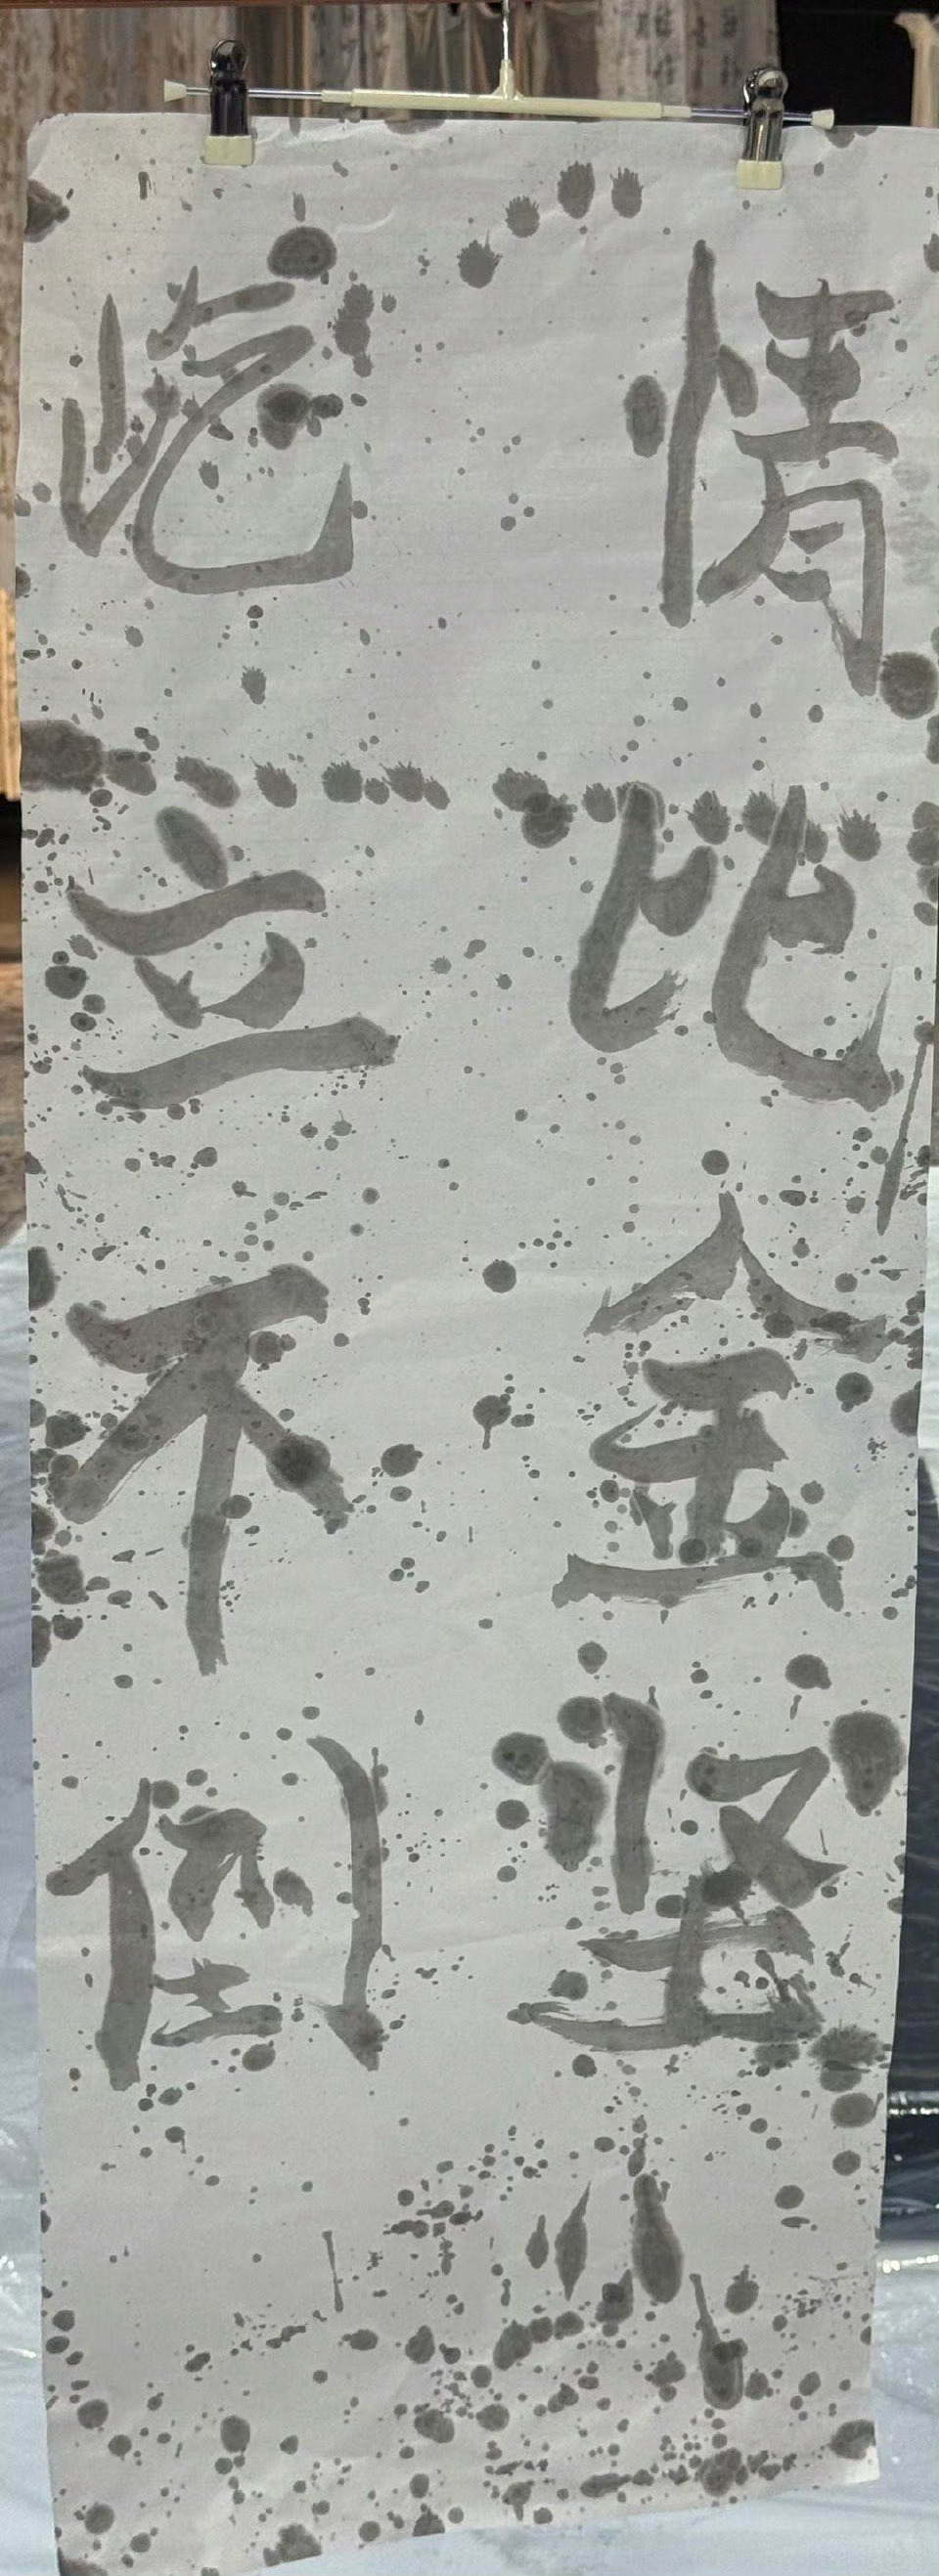 情比金坚
屹立不倒